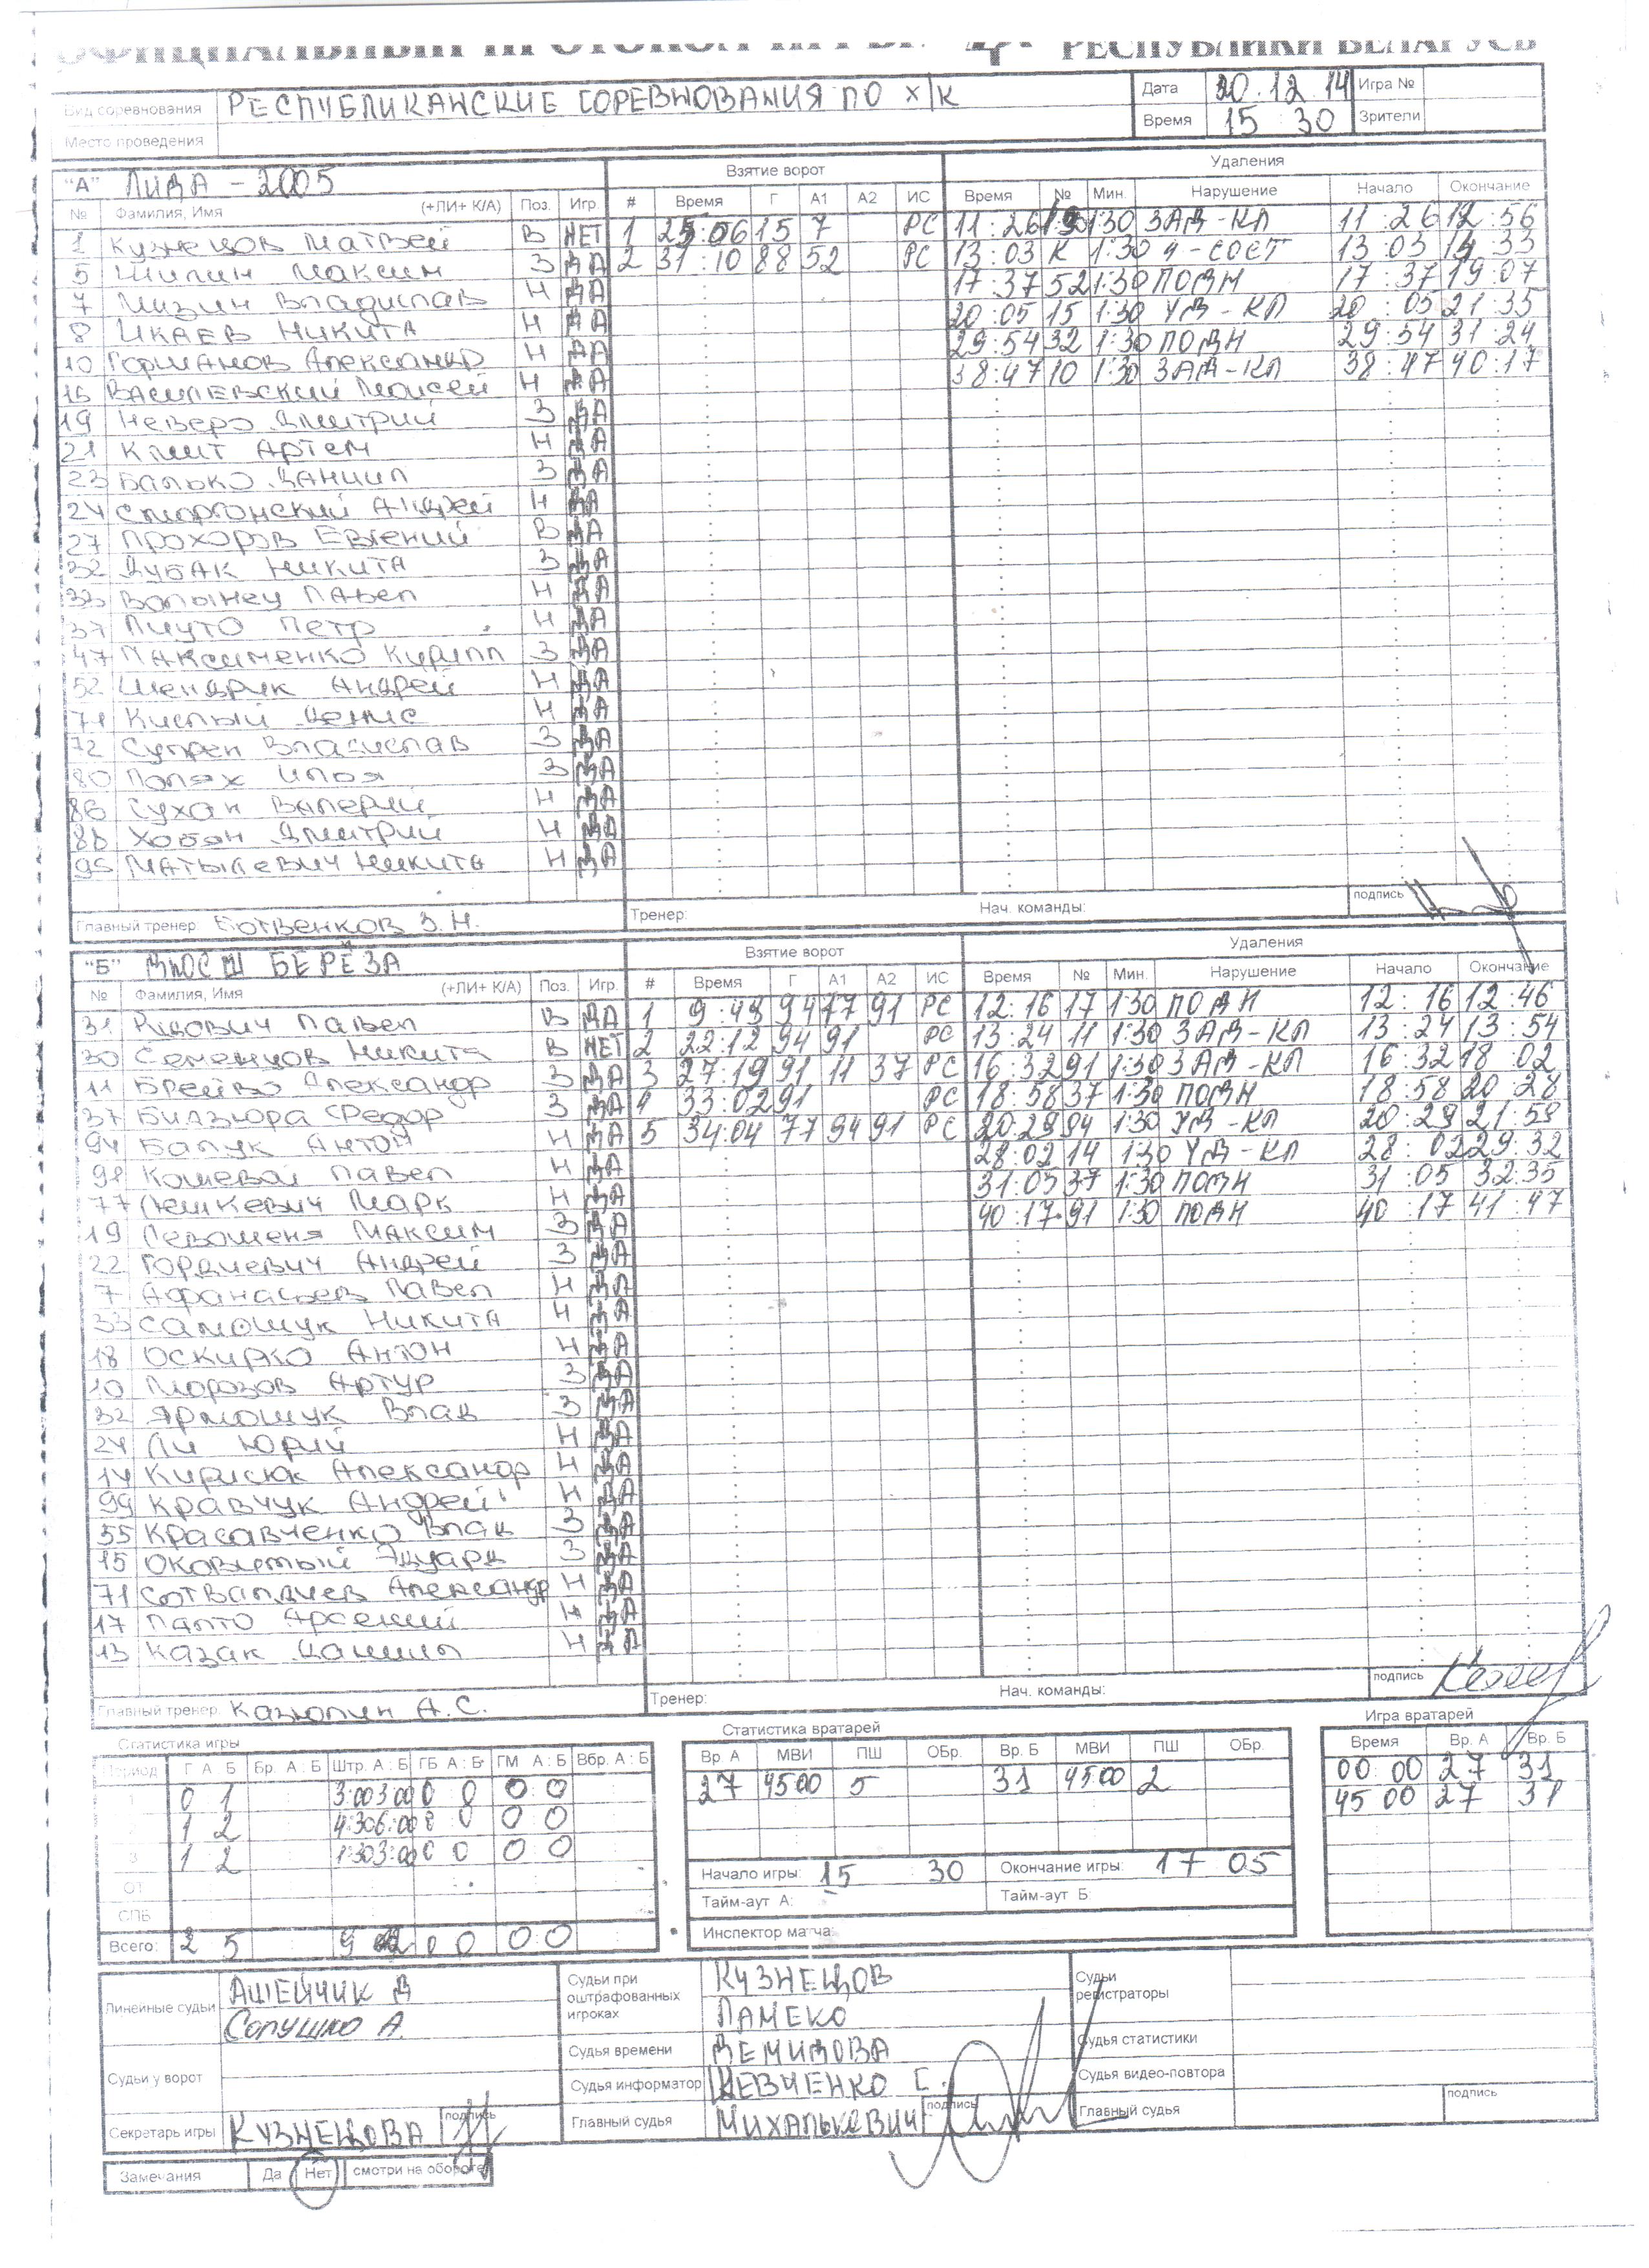 РЕСПУБЛИКИ БЕЛАРУСЬ
Вид соревнования РЕСПУБЛИКАНСКИЕ СОРЕВНОВАНИЯ ПО Х/К Дата 20.12.14 Игра №
Место проведения Время 15 30 Зрители
"А" ЛИДА - 2005 Взятие ворот Удаления
№ Фамилия, Имя (+ЛИ+ К/А) Поз. Игр. # Время Г А1 А2 ИС Время № Мин. Нарушение Начало Окончание
1 Кузнецов Матвей В НЕТ 1 25:06 15 7 РС 11:26 19 1:30 ЗАД-КЛ 11:26 12:56
5 Шилин Максим З ДА 2 31:10 88 52 РС 13:03 К 1:30 Ч-СОСТ 13:03 14:33
7 Мизин Владислав Н ДА 17:37 52 1:30 ПОДН 17:37 19:07
8 Икаев Никита Н ДА 20:05 15 1:30 УД-КЛ 20:05 21:35
10 Горманов Александр Н ДА 29:54 32 1:30 ПОДН 29:54 31:24
15 Василевский Моисей Н ДА 38:47 10 1:30 ЗАД-КЛ 38:47 40:17
19 Неверо Дмитрий З ДА
21 Клит Артем Н ДА
23 Балько Даниил З ДА
24 Сморгонский Андрей Н ДА
27 Прохоров Евгений В ДА
32 Дубак Никита З ДА
33 Волынец Павел Н ДА
37 Лиуто Петр Н ДА
47 Максименко Кирилл З ДА
52 Шендрик Андрей Н ДА
71 Кислый Денис Н ДА
72 Супрен Владислав З ДА
80 Полях Илья З ДА
86 Сухан Валерий Н ДА
88 Хобан Дмитрий Н ДА
95 Матылевич Никита Н ДА
Главный тренер: Ботвенков З.Н. Тренер: Нач. команды: подпись
"Б" БЕРЁЗА Взятие ворот Удаления
№ Фамилия, Имя (+ЛИ+ К/А) Поз. Игр. # Время Г А1 А2 ИС Время № Мин. Нарушение Начало Окончание
31 Павел В ДА 1 9:43 94 17 91 РС 12:16 17 1:30 ПОДН 12:16 12:46
30 Семенцов Никита В НЕТ 2 22:12 94 91 РС 13:24 11 1:30 ЗАД-КЛ 13:24 13:54
11 Брейво Александр З ДА 3 27:19 91 11 37 РС 16:32 91 1:30 ЗАД-КЛ 16:32 18:02
37 Бидзюра Федор З ДА 4 33:02 91 РС 18:58 37 1:30 ПОДН 18:58 20:28
94 Балук Антон Н ДА 5 34:04 77 94 91 РС 20:29 94 1:30 УД-КЛ 20:29 21:59
91 Кошевой Павел Н ДА 28:02 14 1:30 УД-КЛ 28:02 29:32
77 Лешкевич Марк Н ДА 31:05 37 1:30 ПОДН 31:05 32:35
19 Левошеня Максим З ДА 40:17 91 1:30 ПОДН 40:17 41:47
22 Гордиевич Андрей З ДА
7 Афанасьев Павел Н ДА
33 Самошук Никита Н ДА
18 Оскирко Антон Н ДА
10 Морозов Артур З ДА
32 Ярмошук Влад З ДА
24 Ли Юрий Н ДА
14 Кирисюк Александр Н ДА
99 Кравчук Андрей Н ДА
55 Красавченко Влад З ДА
15 Оковитый Эдуард З ДА
71 Сотвалдиев Александр Н ДА
17 Палто Арсений Н ДА
13 Казак Даниил Н ДА
Главный тренер: Казюлин А.С. Тренер: Нач. команды: подпись
Статистика игры Статистика вратарей Игра вратарей
Период Г А : Б Бр. А : Б Штр. А : Б ГБ А : Б ГМ А : Б Вбр. А : Б Вр. А МВИ ПШ ОБр. Вр. Б МВИ ПШ ОБр. Время Вр. А Вр. Б
1 0 1 3:00 3:00 0 0 0 0 27 45 00 5 31 45 00 2 00 00 27 31
2 1 2 4:30 6:00 0 0 0 0 45 00 27 31
3 1 2 1:30 3:00 0 0 0 0
ОТ Начало игры: 15 30 Окончание игры: 17 05
СПБ Тайм-аут А: Тайм-аут Б:
Всего: 2 5 9 12 0 0 0 0 Инспектор матча:
Линейные судьи АШЕЙЧИК Д Судьи при оштрафованных игроках КУЗНЕЦОВ Судьи регистраторы
Сопушко А. ЛАМЕКО
Судьи у ворот Судья времени ДЕМИДОВА Судья статистики
Судья информатор ШЕВЧЕНКО С. Судья видео-повтора
Секретарь игры КУЗНЕЦОВА подпись Главный судья МИХАЛЬКЕВИЧ подпись Главный судья подпись
Замечания Да Нет смотри на обороте